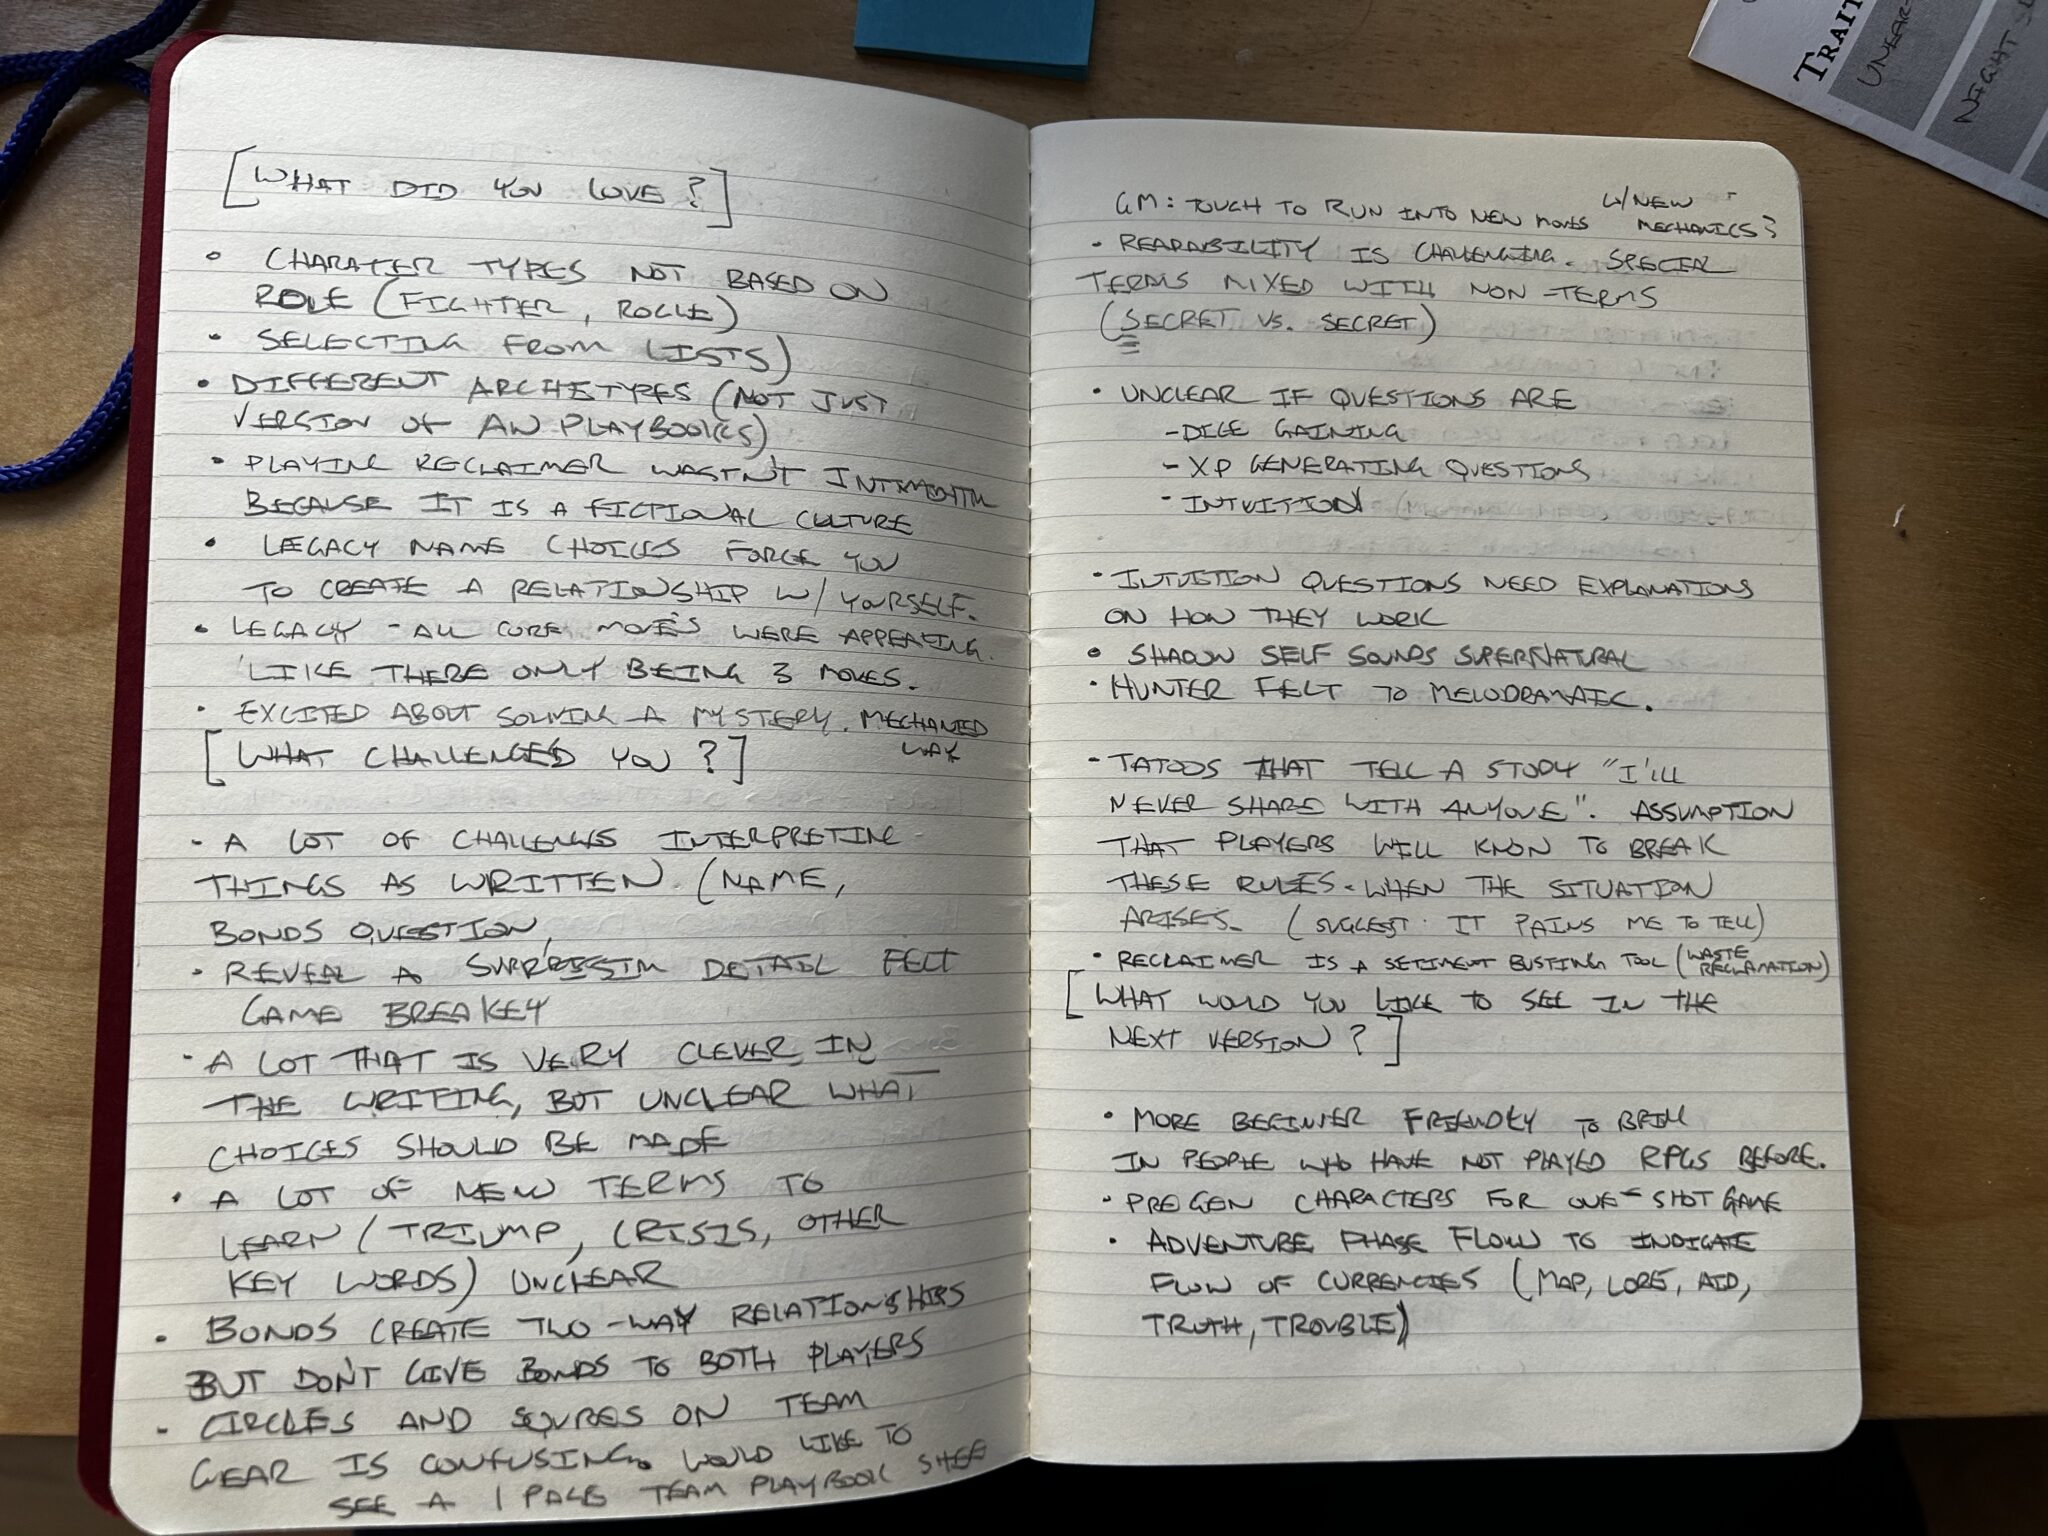 [WHAT DID YOU LOVE?]
• CHARATER TYPES NOT BASED ON
ROLE (FIGHTER, ROGUE)
• SELECTING FROM LISTS)
• DIFFERENT ARCHETYPES (NOT JUST
VERSION OF AW PLAYBOOKS)
• PLAYING RECLAIMER WASTN'T
BECAUSE IT IS A FICTIONAL CULTURE
• LEGACY NAME CHOICES FORCE YOU
TO CREATE A RELATIONSHIP W/ YOURSELF.
• LEGACY - ALL CORE MOVES WERE APPEALING.
LIKE THERE ONLY BEING 3 MOVES.
• EXCITED ABOUT SOLVING A MYSTERY. MECHANIED
WAY
[WHAT CHALLENGED YOU?]
- A LOT OF CHALLENGES INTERPRETING
THINGS AS WRITTEN. (NAME,
BONDS QUESTION,
- REVEAL A DETAIL FELT
GAME BREAKEY
- A LOT THAT IS VERY CLEVER IN
THE WRITING, BUT UNCLEAR WHAT
CHOICES SHOULD BE MADE
• A LOT OF NEW TERMS TO
LEARN (TRIUMP, CRISIS, OTHER
KEY WORDS) UNCLEAR
• BONDS CREATE TWO-WAY RELATIONSHIPS
BUT DON'T GIVE BONDS TO BOTH PLAYERS
- CIRCLES AND SQURES ON TEAM
GEAR IS CONFUSING. WOULD LIKE TO
SEE A 1 PAGE TEAM PLAYBOOK SHEE
GM: TOUGH TO RUN INTO NEW MOVES W/ NEW
MECHANICS?
• READABILITY IS CHALLENGING. SPECIAL
TERMS MIXED WITH NON-TERMS
(SECRET VS. SECRET)
• UNCLEAR IF QUESTIONS ARE
- DICE GAINING
- XP GENERATING QUESTIONS
- INTUITION
• INTUITION QUESTIONS NEED EXPLANATIONS
ON HOW THEY WORK
• SHADOW SELF SOUNDS SUPERNATURAL
• HUNTER FELT TO MELODRAMATIC.
- TATOOS THAT TELL A STORY "I'LL
NEVER SHARE WITH ANYONE". ASSUMPTION
THAT PLAYERS WILL KNOW TO BREAK
THESE RULES. WHEN THE SITUATION
ARISES. (SUGGEST: IT PAINS ME TO TELL)
• RECLAIMER IS A SETIMENT BUSTING TOOL (WASTE
RECLAMATION)
[WHAT WOULD YOU LIKE TO SEE IN THE
NEXT VERSION?]
• MORE BEGINNER FRIENDLY TO BRING
IN PEOPLE WHO HAVE NOT PLAYED RPGS BEFORE.
• PREGEN CHARACTERS FOR ONE-SHOT GAME
• ADVENTURE PHASE FLOW TO INDICATE
FLOW OF CURRENCIES (MAP, LORE, AID,
TRUTH, TROUBLE)
TRAIT
NIGHT